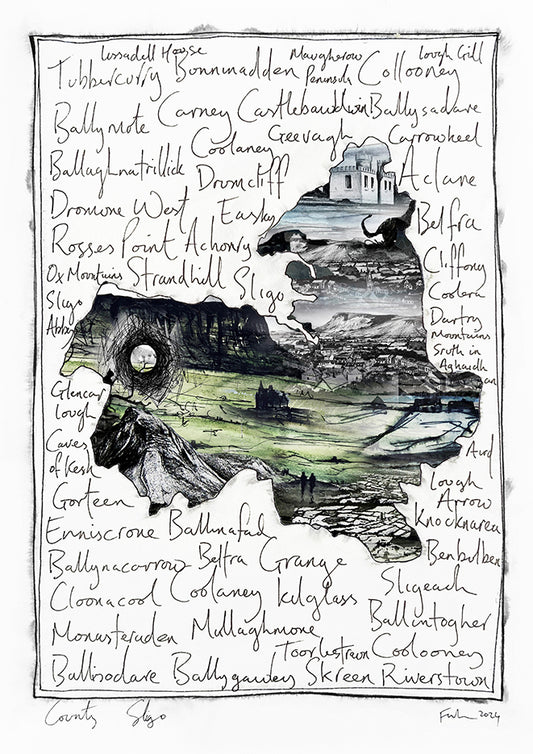 Lissadell House Maugherow Peninsula Lough Gill
Tubbercurry Bunninadden Collooney
Ballymote Carney Castlebawdwin Ballysadare
Coolaney Geevagh Carrowkeel
Ballaghnatrillick Drumcliff Aclane
Dromore West Easky Belfra
Rosses Point Achonry Cliffony
Ox Mountains Strandhill Sligo Coolara
Sligo Abbey
Dartry Mountains
Sruth in Aghaidh an Aird
Glencar Lough
Caves of Kesh
Lough Arrow
Gorteen Knocknarea
Enniscrone Ballinafad
Ballynacarrow Belfra Grange Benbulben
Cloonacool Coolaney Kilglass Sligeach
Monasteraden Mullaghmore Ballintogher
Toorlestraun Coolooney
Ballisodare Ballygawley Skreen Riverstown
County Sligo
2024